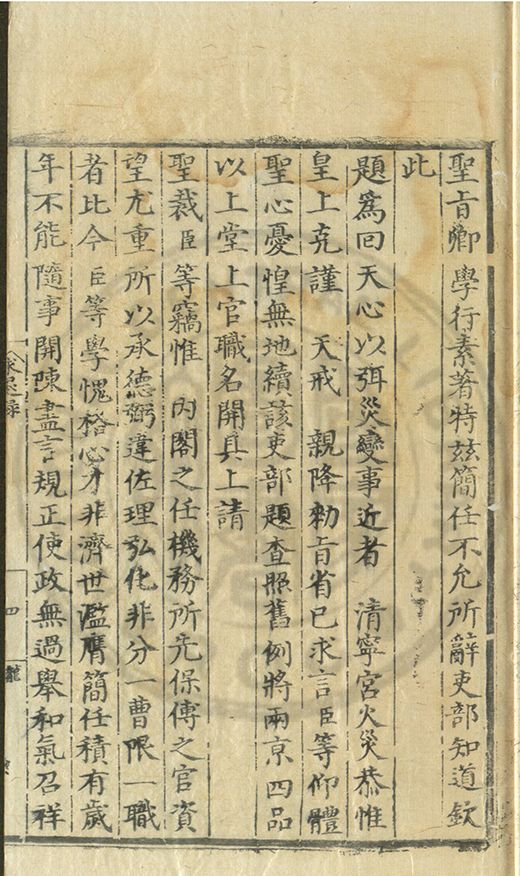 聖旨卿 學行素著特茲簡任不允所辭吏部知道欽
此
題為回 天心以弭災變事近者 清寧宮火災恭惟
皇上克謹 天戒 親降勑旨省己求言臣等仰體
聖心憂惶無地續該吏部題查照舊例將兩京四品
以上堂上官職名開具上請
聖裁臣等竊惟 內閣之任機務所先保傅之官資
望尤重所以承德弼違佐理弘化非分一曹限一職
者比今臣等學愧格心才非濟世濫膺簡任積有歲
年不能隨事開陳盡言規正使政無過舉和氣召祥
四